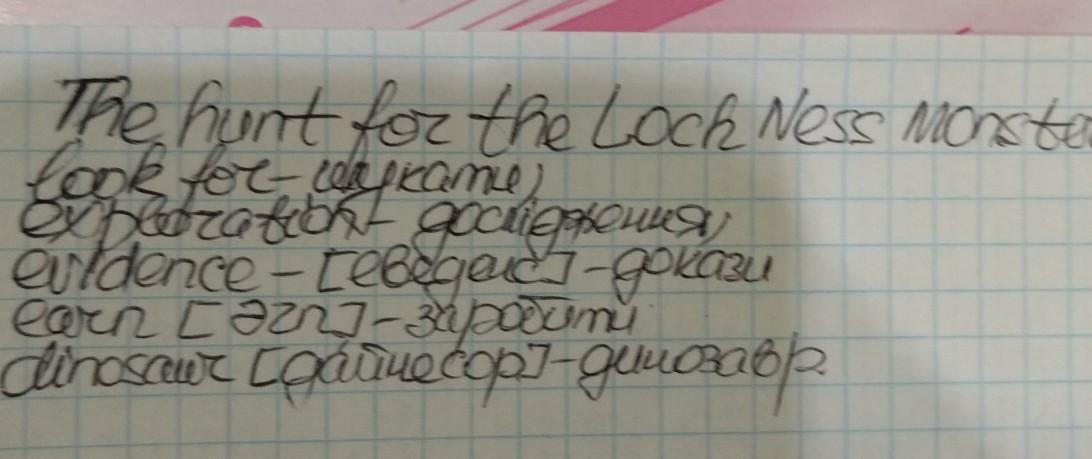 The hunt for the Loch Ness Monste
look for - шукати,
exploration - дослідження,
evidence - [еведенс] - докази
earn [эrn] - заробити
dinosaur [дайнесор] - динозавр